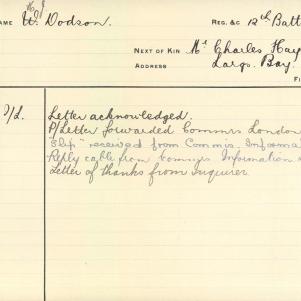 H. J.
NAME W. Dodson. REG. &C 12th Batt
NEXT OF KIN Mr Charles Hay
ADDRESS Largs Bay.
F
Letter acknowledged.
P/Letter forwarded Commrs London
Slip "received from Comm's Informa
Reply cable from Commrs Information
Letter of thanks from Inquirer